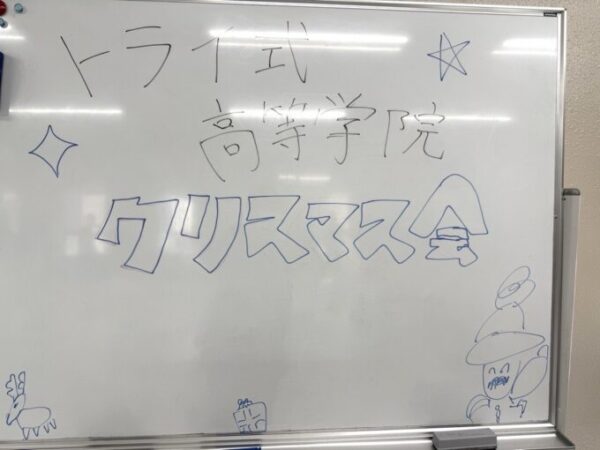 トライ式
高等学院
クリスマス会